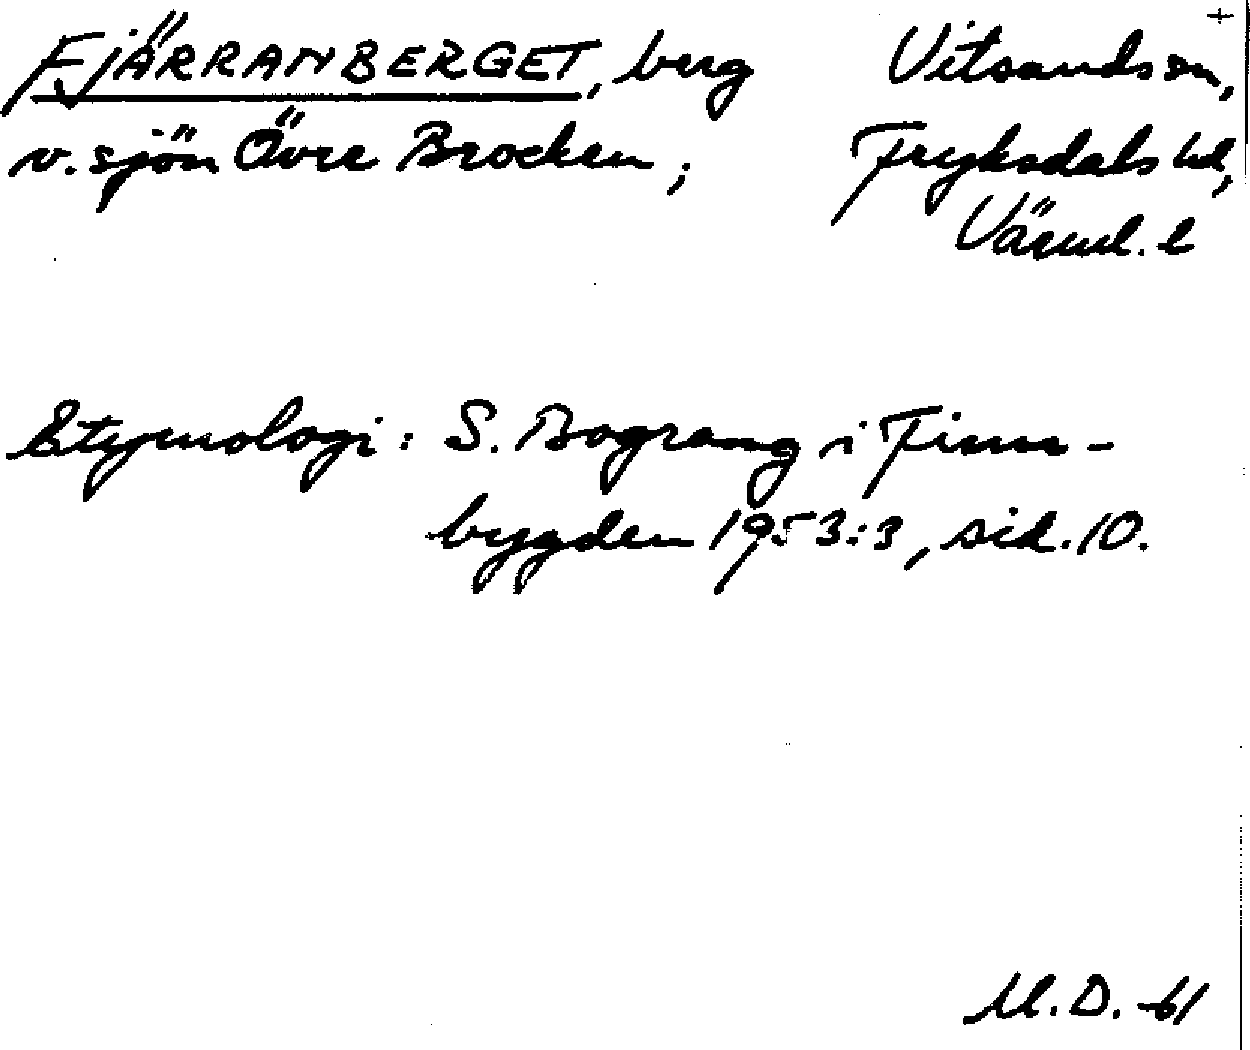 +
FJÄRRANBERGET, berg
v. sjön Övre Brocken;
Vitsands sn,
Fryksdals hd,
Värml. l
Etymologi: S. Bograng i Finn-
bygden 1953:3, sid. 10.
M.D. -61